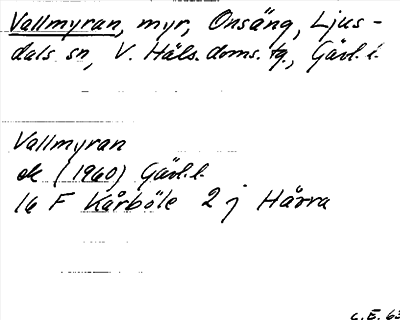 Vallmyran, myr, Onsäng, Ljus-
dals sn, V. Häls. doms. tg., Gävl. l.
Vallmyran
ek (1960) Gävl. l.
16 F Kårböle 2 j Hårra
C.E. 63